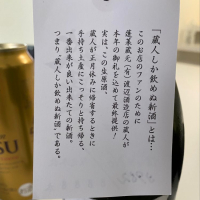 『蔵人しか飲めぬ新酒』とは…
このお店のファンのために
蓬莱蔵元(有)渡辺酒造店の蔵人が
本年の御礼を込めて最終提供!
実は、この生原酒、
蔵人が正月休みに帰省するときに
手持ち土産にこっそりと持ち帰る、
一番出来が良い出来たての新酒。
つまり「蔵人しか飲めぬ新酒」である。
SU